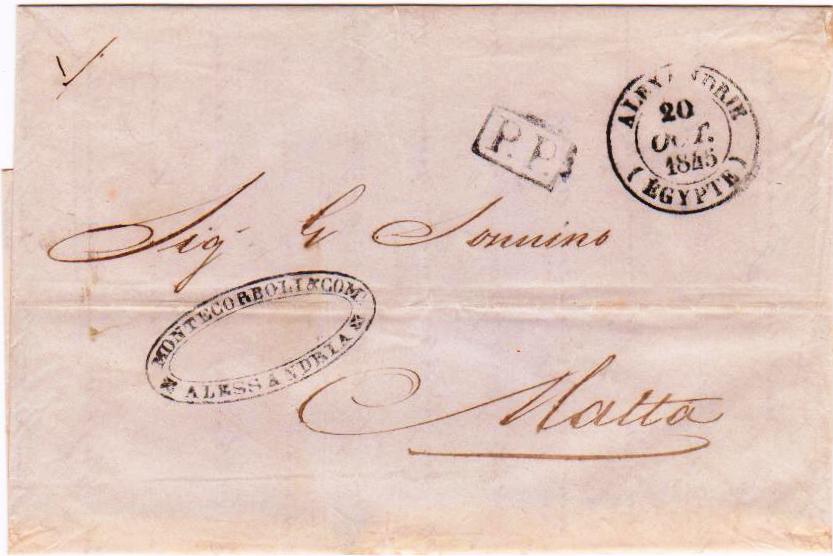 ALEXANDRIE
20
OCT.
1845
(EGYPTE)
P.P.
Sig G Sonnino
MONTECORBOLI & COM.
ALESSANDRIA
Malta